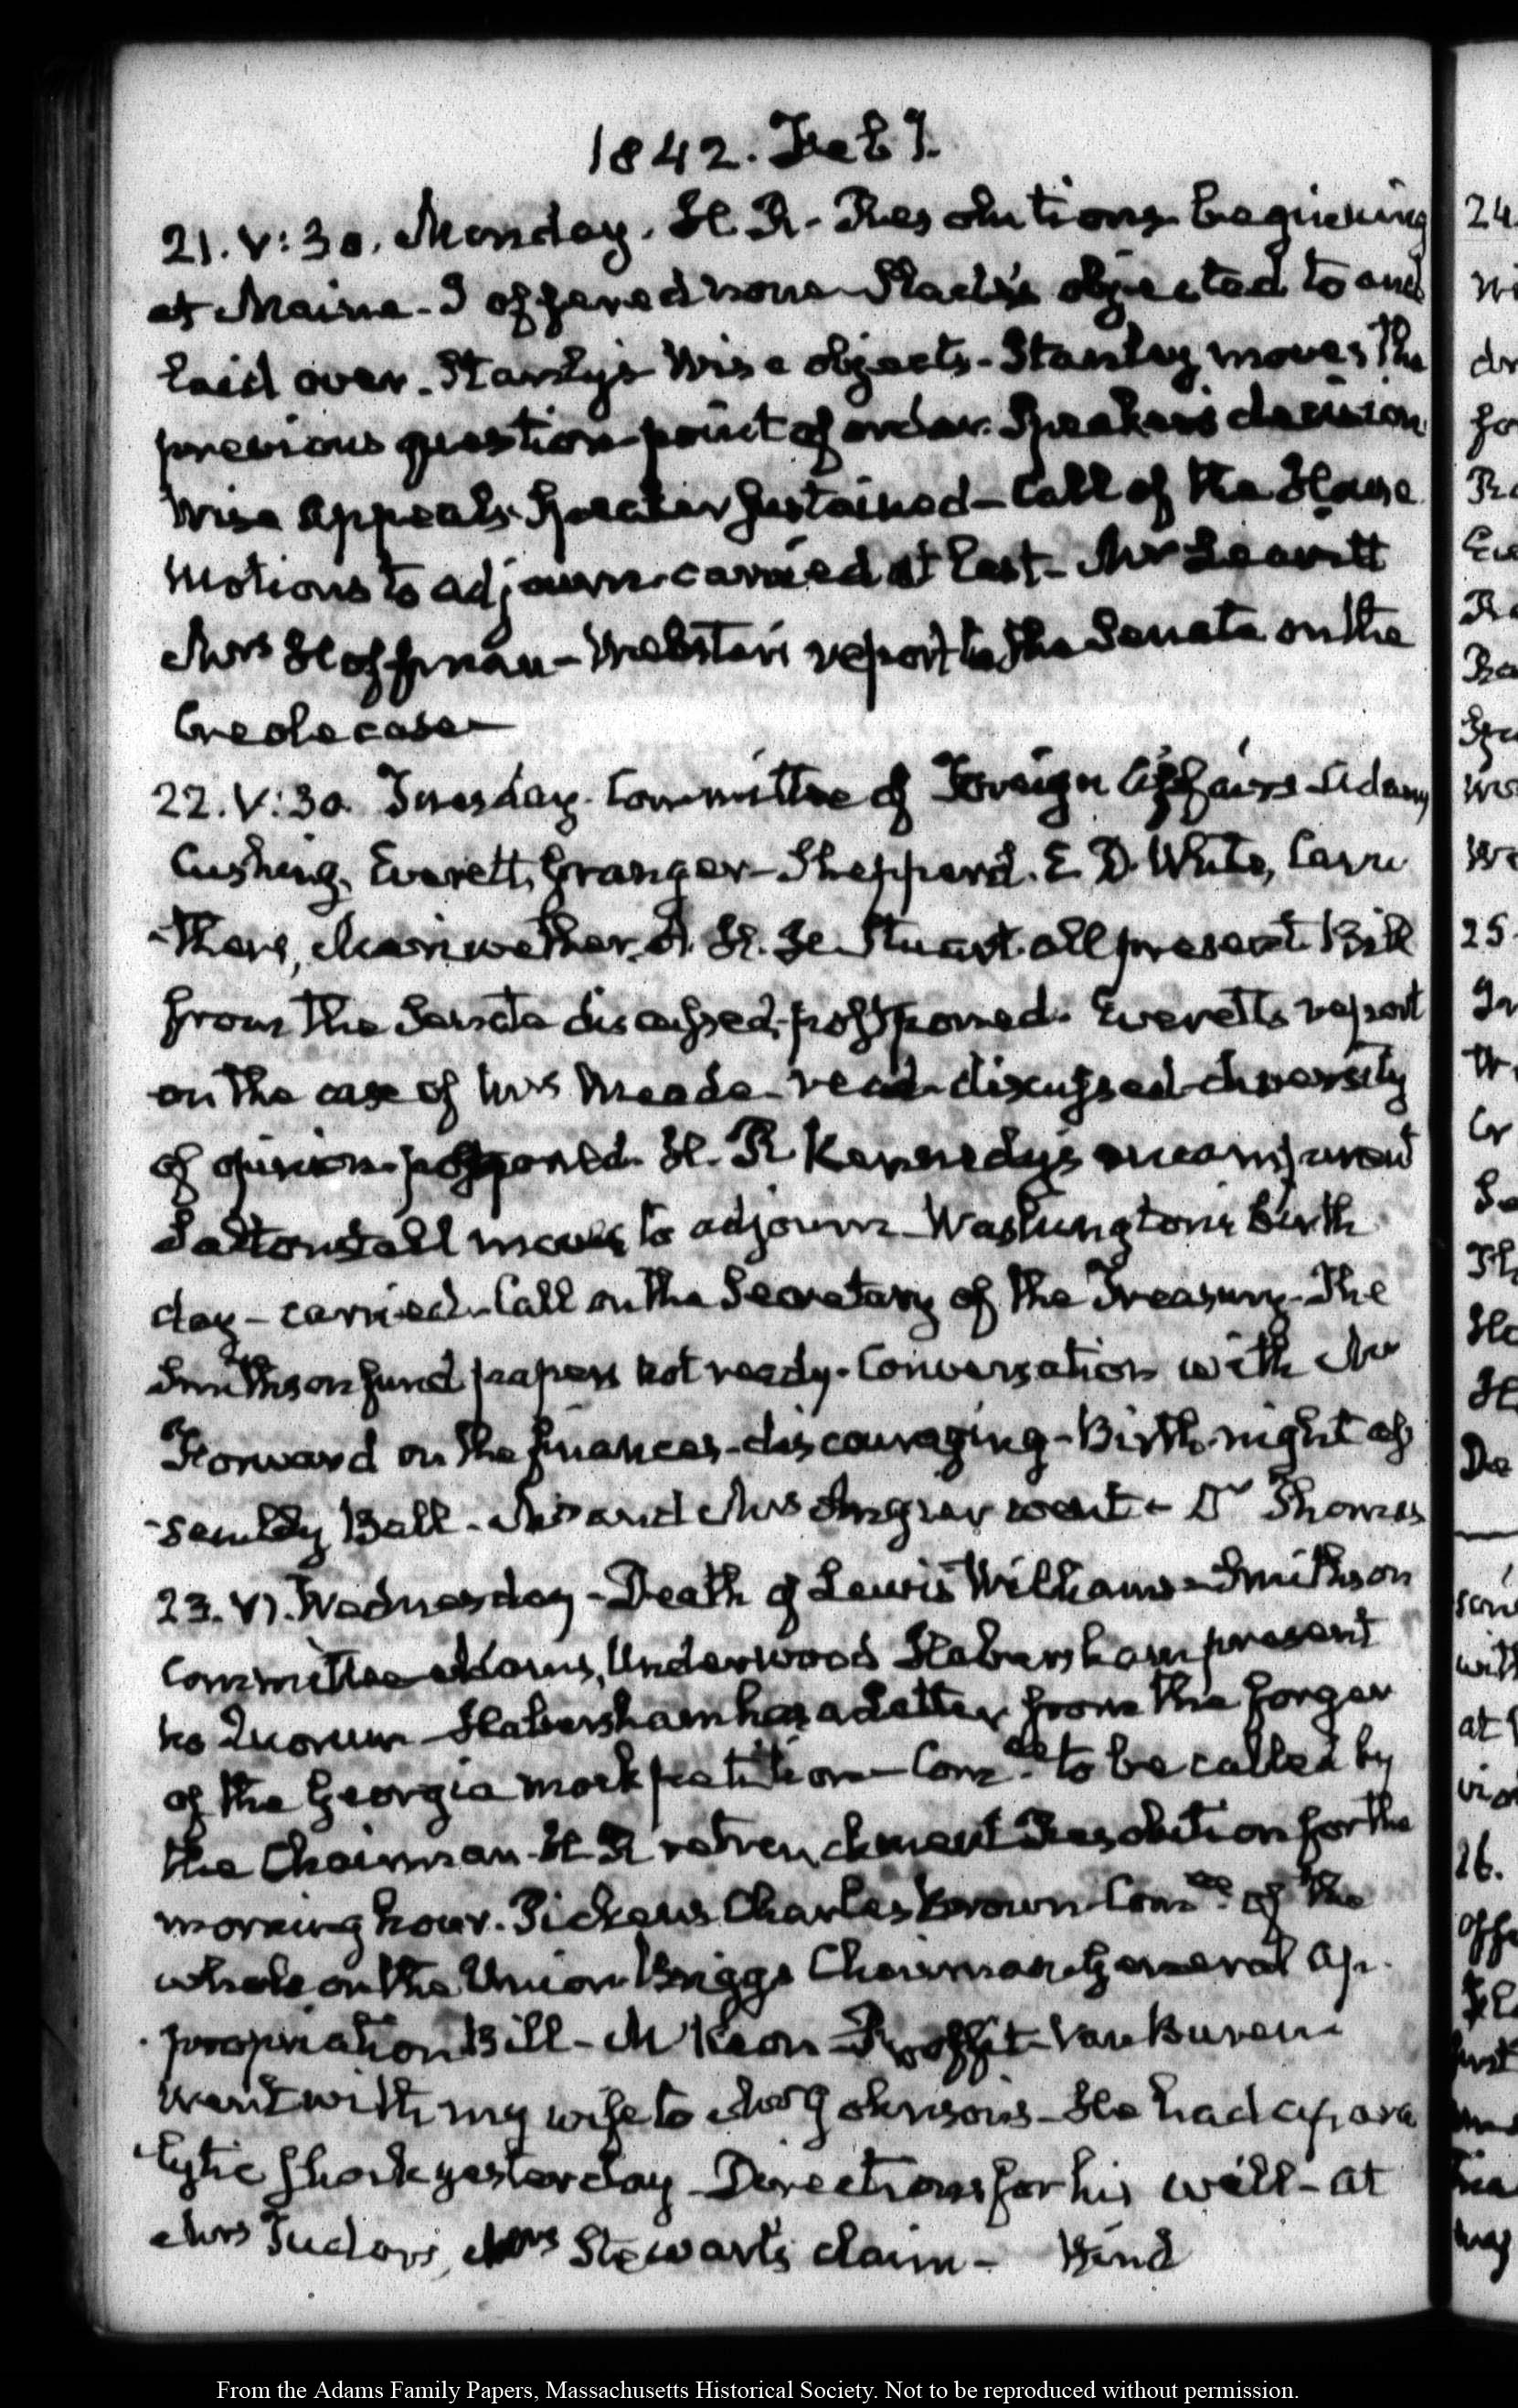 1842. Feby.
21. V:30. Monday. H. R. Resolutions beginning
at Maine. I offered none Slade's objected to and
laid over. Stanly's Wise objects - Stanley moves the
previous question point of order. Speaker's decision
Wise appeals Speaker sustained - Call of the House
Motions to adjourn carried at last - Mr Leavitt
Mrs Hoffman - Webster's report to the Senate on the
Creole case
22. V:30. Tuesday. Committee of Foreign Affairs Adams
Cushing, Everett, Granger - Shepperd. E. D. White, Carru
-thers, Meriwether. A. H. H. Stuart all present Bill
from the Senate discussed, postponed. Everett's report
on the case of Mrs Meade - read discussed diversity
of opinion postponed. H. R. Kennedy's
Saltonstall moves to adjourn Washington's birth
day - carried. Call on the Secretary of the Treasury. The
Smithson fund papers not ready. Conversation with Mr
Forward on the finances - discouraging - Birth-night as
-sembly Ball. Mr and Mrs Angier went - Dr Thomas
23. VI. Wednesday - Death of Lewis Williams - Smithson
Committee Adams, Underwood Habersham present
no Quorum Habersham has a Letter from the forger
of the Georgia mock petition - Comee to be called by
the Chairman. H R retrenchment Resolution for the
morning hour. Pickens Charles Brown Comee of the
whole on the Union Briggs Chairman General Ap-
-propriation Bill - McKeon - Proffit Van Buren
Went with my wife to Mr Johnson's - He had a para
-lytic shock yesterday - Directions for his will - at
Mrs Tudor's, Mrs Stewart's claim - Wind
24
25
26.
From the Adams Family Papers, Massachusetts Historical Society. Not to be reproduced without permission.